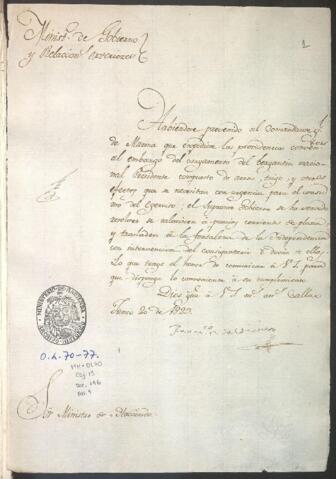 Minist.º de Gobierno
y Relacion.s exteriores
1
Habiendose prevenido al Comandante g.l
de Marina que expidiera las providencias
al embargo del cargamento del bergantin nacio-
nal Presidente compuesto de arroz, trigo, y otros
efectos que se necesitan con urgencia para el consu-
mo del Exercito; el Supremo Gobierno se ha servido
resolver se valorizen a precios corrientes de plaza
y trasladen à la fortaleza de la Independencia
con intervencion del consignatario ò dueño de ellos.
Lo que tengo el honor de comunicar à V.S. para
que disponga lo conveniente à su cumplimiento.
Dios gue à V.S. m.s an.s Callao
Enero 20 de 1825.
O.L. 70-77.
MH-OL70
Caj. 19
Doc. 196
Fol. 1
Sor Ministro de Hacienda.